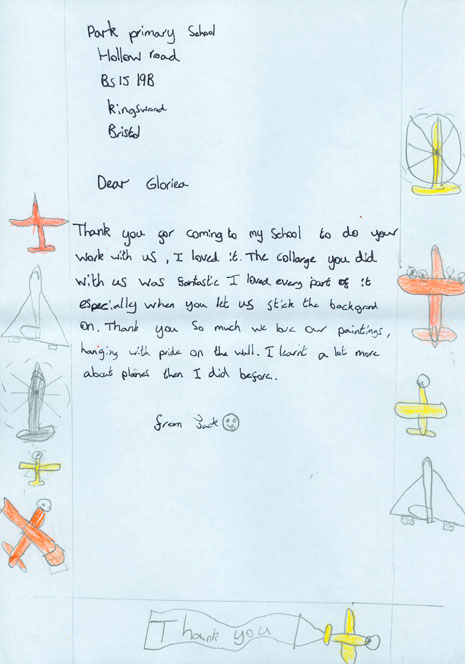 Park primary School
Hollow road
BS15 19B
Kingswood
Bristol
Dear Gloriea
Thank you gor coming to my School to do your
work with us, I loved it. The collarge you did
with us was gantastic I loved every part of it
especially when you let us stick the background
on. Thank you so much we love our paintings,
hanging with pride on the wall. I learnt a lot more
about planes then I did before.
from Jack
Thank you